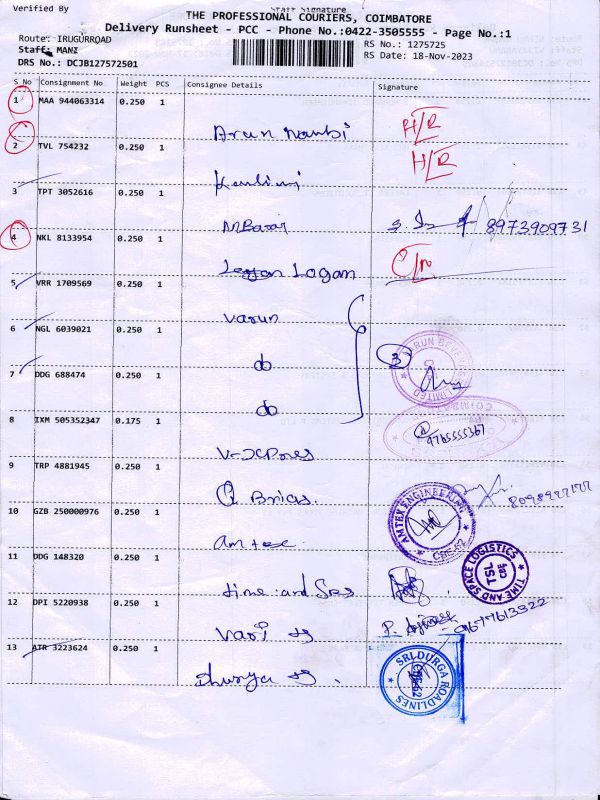 Verified By Staff Signature
THE PROFESSIONAL COURIERS, COIMBATORE
Delivery Runsheet - PCC - Phone No.:0422-3505555 - Page No.:1
Route: IRUGURROAD RS No.: 1275725
Staff: MANI RS Date: 18-Nov-2023
DRS No.: DCJB127572501
S No Consignment No Weight PCS Consignee Details Signature
1 MAA 944063314 0.250 1
Arun Nambi H/R
2 TVL 754232 0.250 1 H/R
3 TPT 3052616 0.250 1
8973909731
4 NKL 8133954 0.250 1
Logan
5 VRR 1709569 0.250 1
Varun
6 NGL 6039021 0.250 1
do 3
7 DDG 688474 0.250 1
do
8 IXM 505352347 0.175 1
9 TRP 4881945 0.250 1
Q Brics.
10 GZB 250000976 0.250 1 AMTEX ENGINEERING CBE-62
Amtex
11 DDG 148320 0.250 1 TIME AND SPACE LOGISTICS TSL CBE
time and
12 DPI 5220938 0.250 1 9677613322
13 ATR 3223624 0.250 1 SRI DURGA ROADLINES